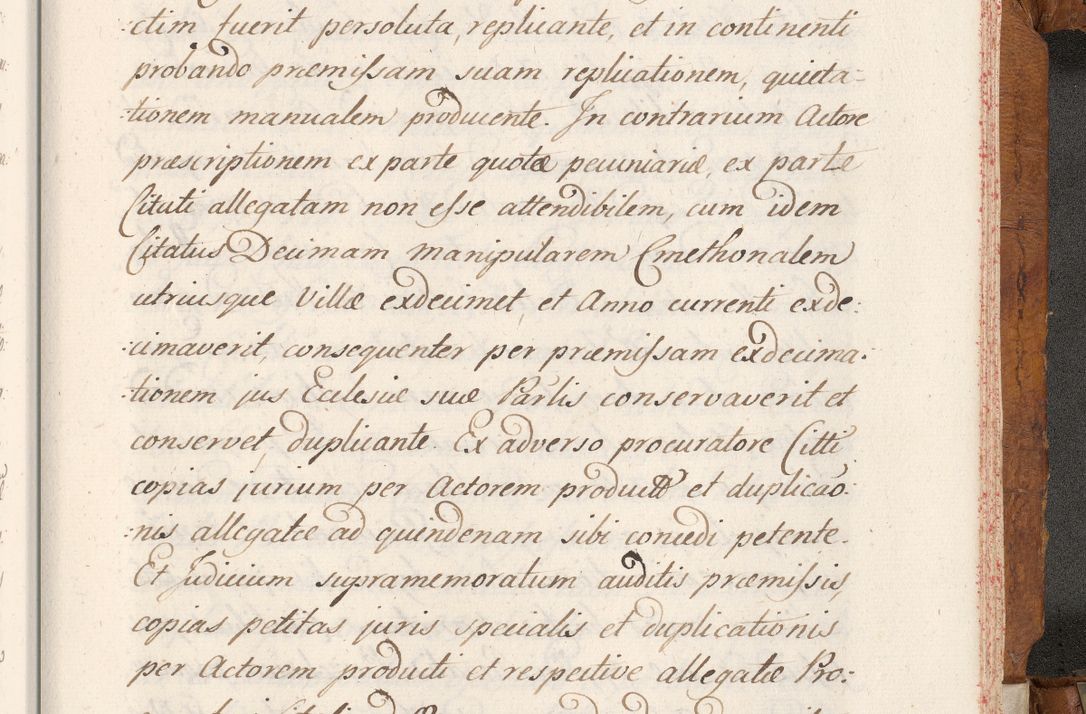 :ctim fuerit persoluta, replicante, et in continenti
probando præmissam suam replicationem, quieta=
:tionem manualem producente. In contrarium Actore
præscriptionem ex parte quotæ pecuniariæ, ex parte
Citati allegatam non esse attendibilem, cum idem
Citatus Decimam manipularem Cmethonalem
utriusque Villæ exdecimet, et Anno currenti exde:
:cimaverit, consequenter per præmissam exdecima:
:tionem jus Ecclesiæ suæ Parlis conservaverit et
conservet, duplicante. Ex adverso procuratore Citti
copias jurium per Actorem product et duplicao:
:nis allegatæ ad quindenam sibi concedi petente.
Et Judicium supramemoratum auditis præmissis,
copias petitas juris specialis et duplicationis
per Actorem producti et respective allegatæ Pro: